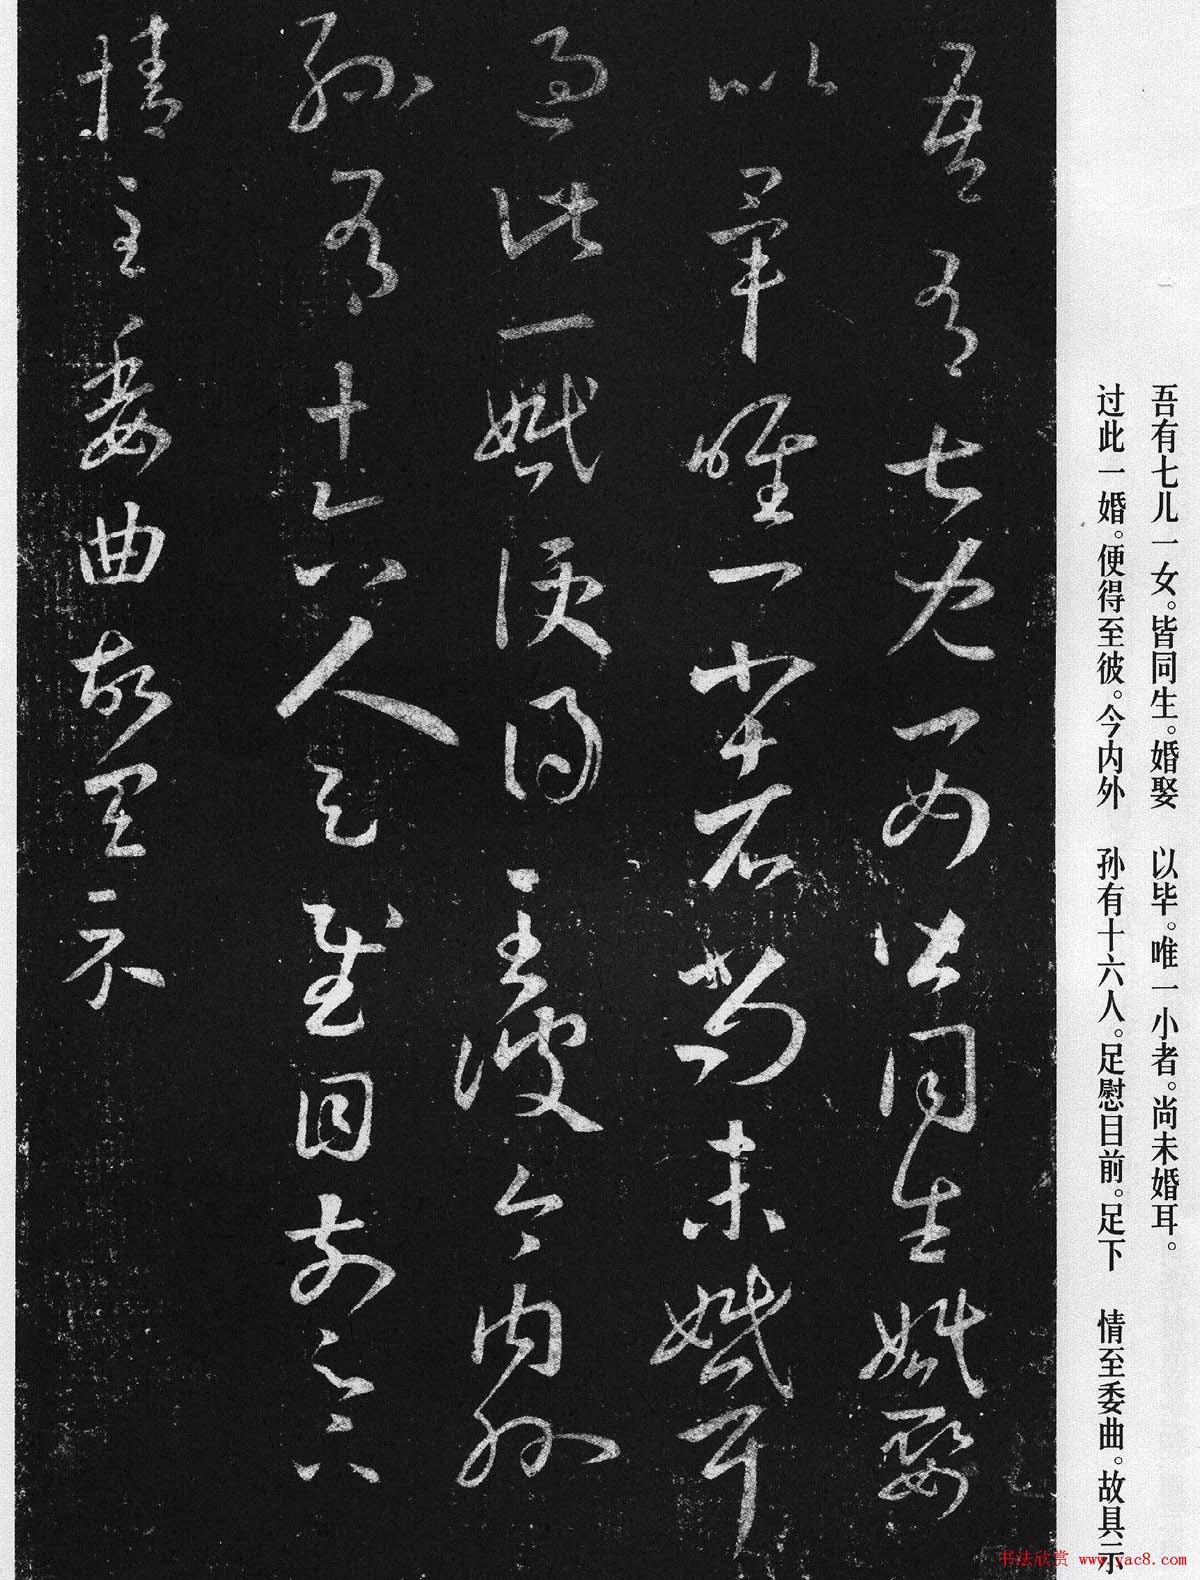 吾有七儿一女皆同生婚娶
以毕唯一小者尚未婚耳
过此一婚便得至彼今内外
孙有十六人足慰目前足下
情至委曲故具示
吾有七儿一女。皆同生。婚娶 以毕。唯一小者。尚未婚耳。
过此一婚。便得至彼。今内外 孙有十六人。足慰目前。足下 情至委曲。故具示
书法欣赏 www.yac8.com